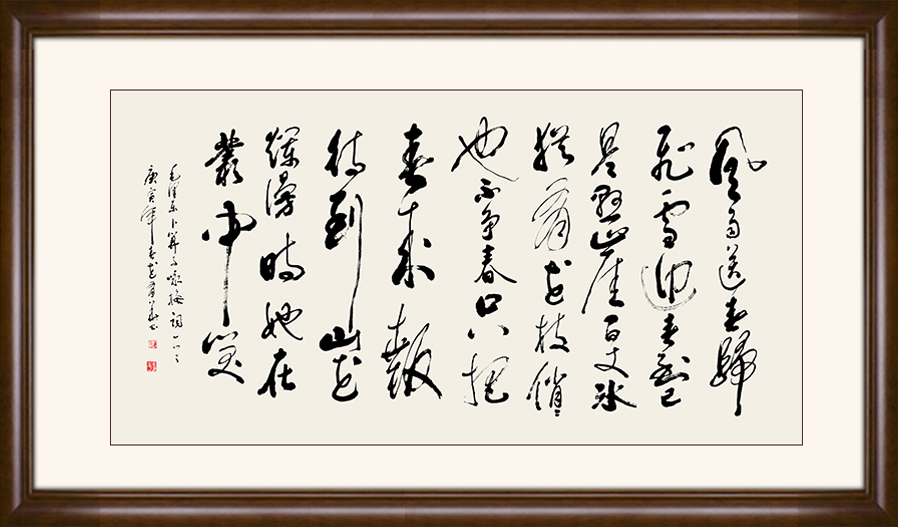 風雨送春歸
飛雪迎春到已
是懸崖百丈冰
猶有花枝俏々
也不争春只把
春來報
待到山花
爛漫時她在
叢中笑
毛澤東卜算子咏梅詞一首
庚寅年春